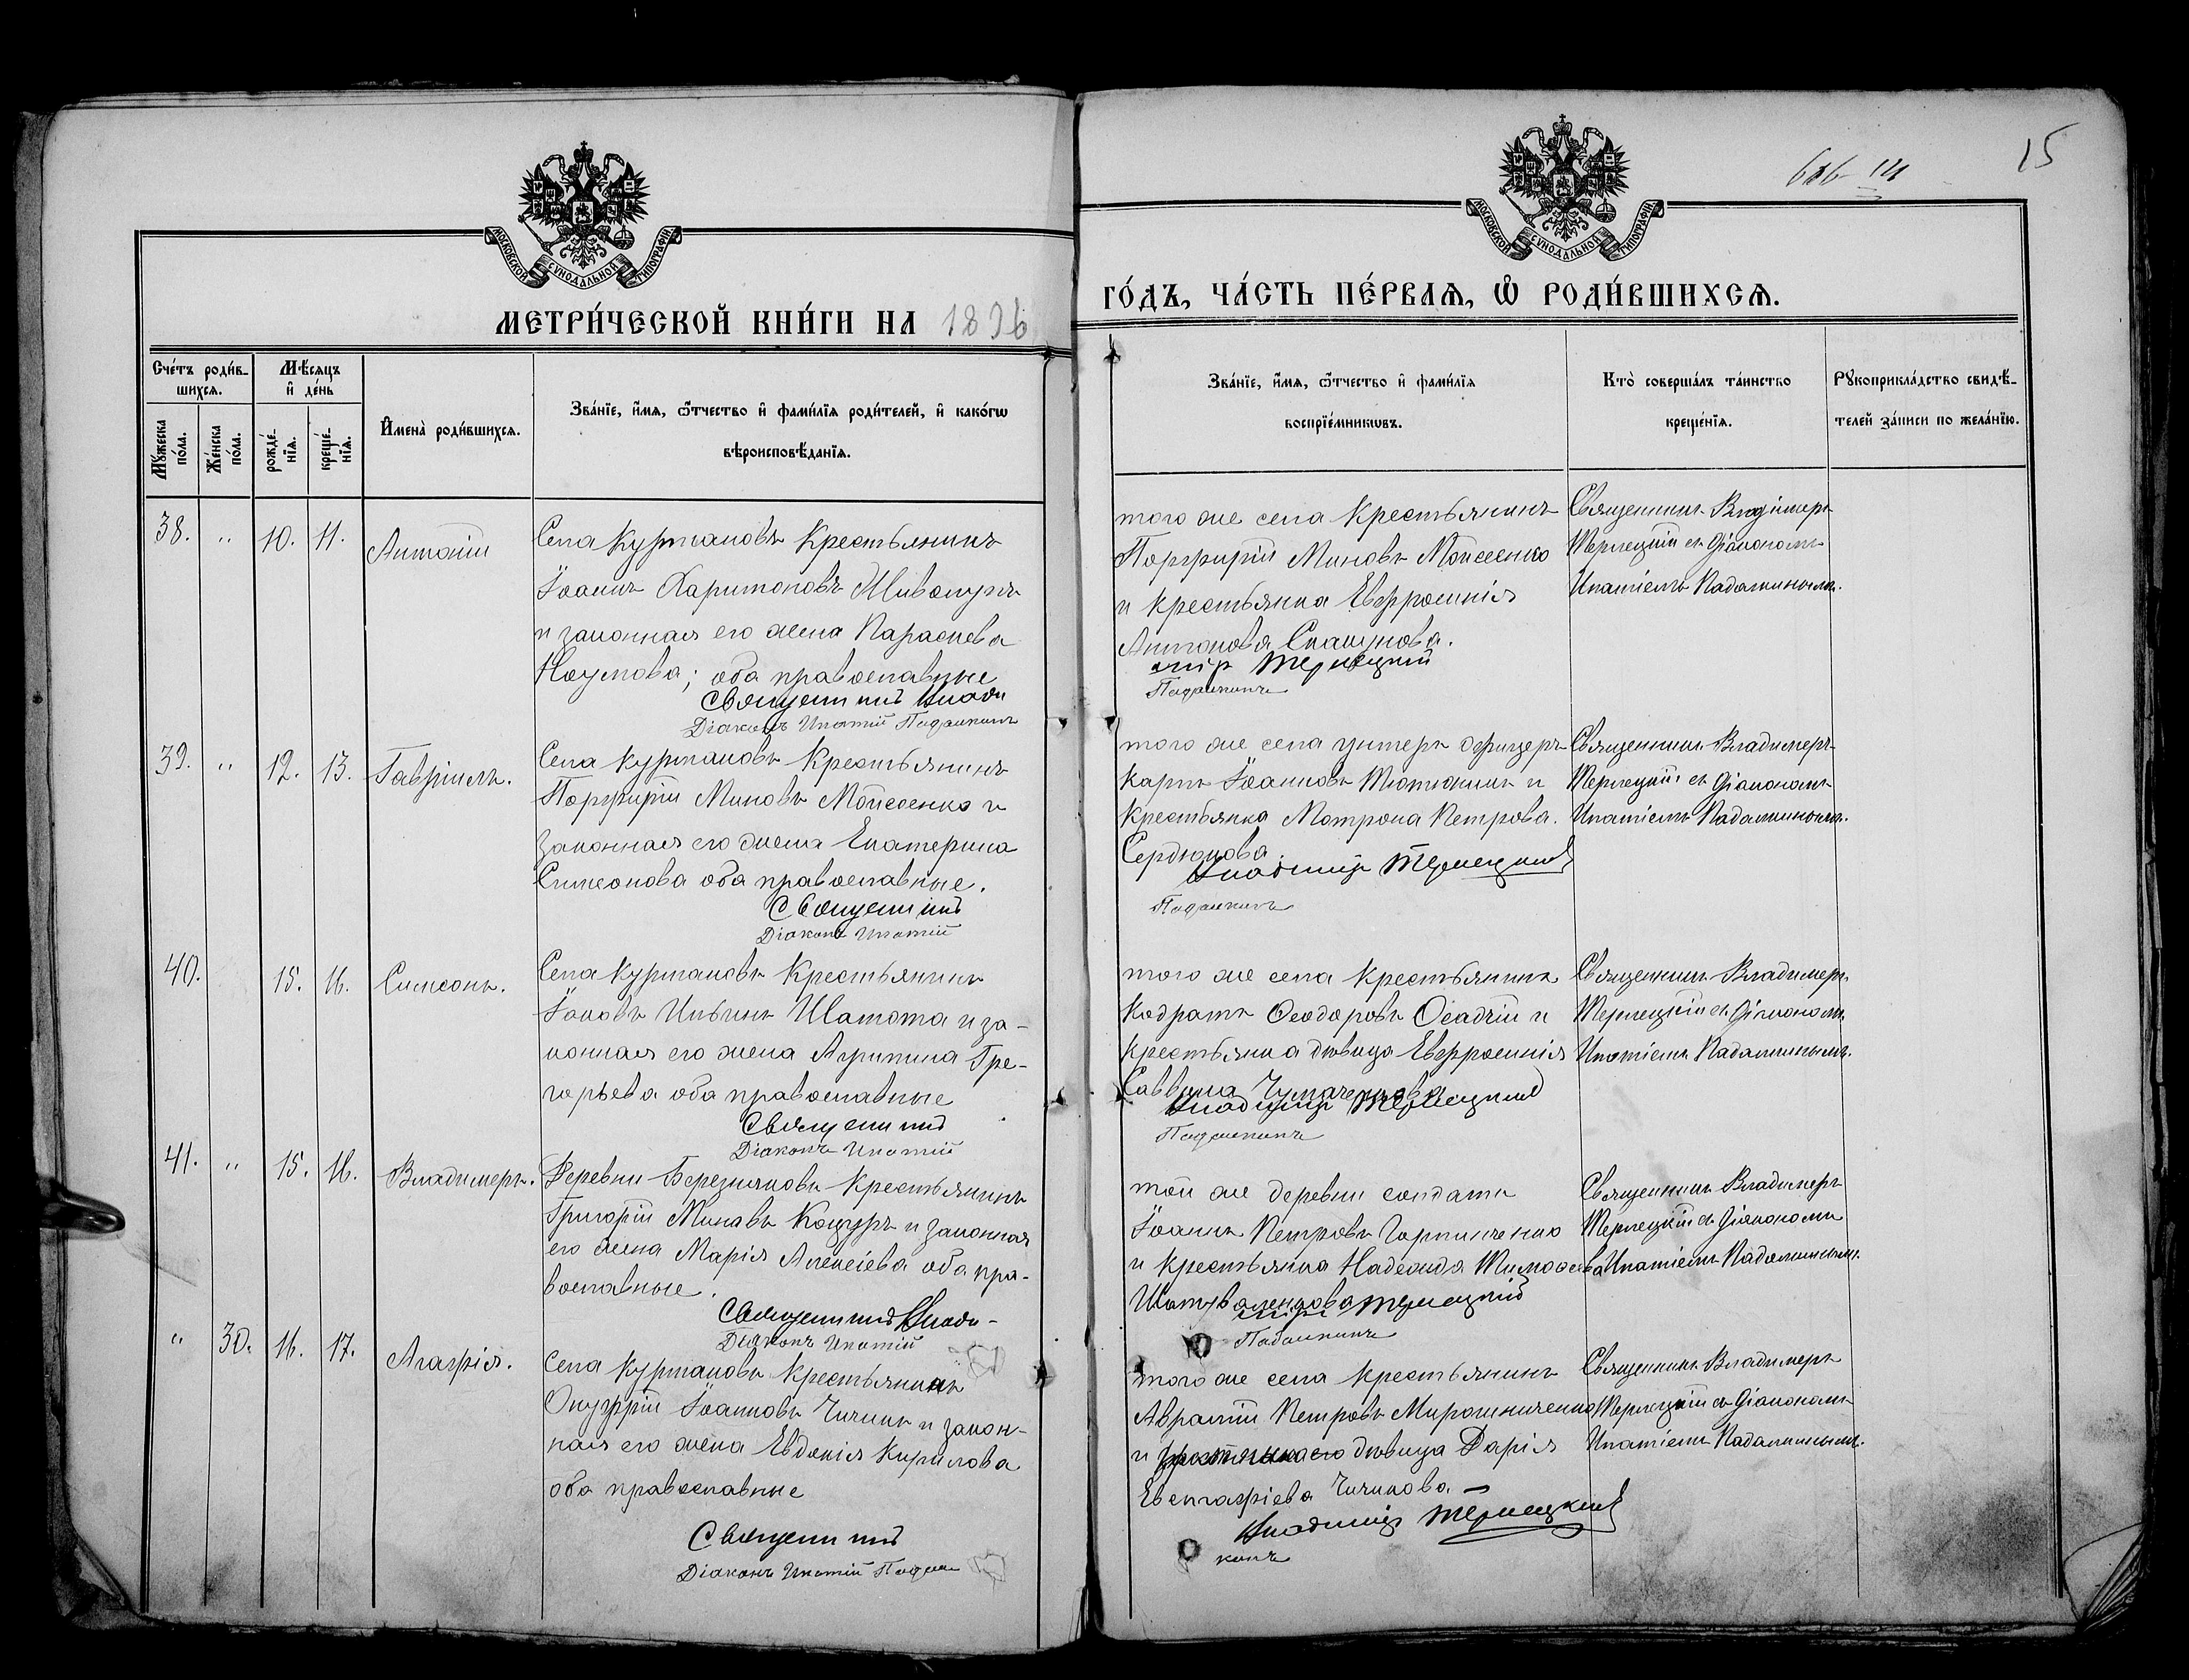 626 14
15
МОСКОВСКОЙ СѴНОДАЛЬНОЙ ТИПОГРАФІИ
МОСКОВСКОЙ СѴНОДАЛЬНОЙ ТИПОГРАФІИ
МЕТРИ́ЧЕСКОЙ КНИ́ГИ НА 1896
ГО́ДЪ, ЧА́СТЬ ПЕ́РВАѦ, Ѽ РОДИ́ВШИХСѦ.
Сче́тъ роди́в-
шихсѧ.
Мꙋжеска
по́ла.
Же́нска
по́ла.
Мѣ́сѧцъ
и҆ де́нь
рожде́-
нїѧ.
креще́-
нїѧ.
И҆мена̀ роди́вшихсѧ.
Зва́нїе, и҆́мѧ, ѻ҆́тчество и҆ фами́лїѧ роди́телей, и҆ како́гѡ
вѣроисповѣ́данїѧ.
Зва́нїе, и҆́мѧ, ѻ҆́тчество и҆ фами́лїѧ
воспрїе́мникѡвъ.
Кто̀ соверша́лъ та́инство
креще́нїѧ.
Рꙋкоприкла́дство свидѣ́-
телей за́писи по жела́нїю.
38. " 10. 11. Антоній
Села Курмановъ Крестьянинъ
Іоаннъ Харитоновъ Живолупъ
и законная его жена Параскева
Наумова; оба православные
Священникъ Влади
Діаконъ Ипатій Падалкинъ
того же села Крестьянинъ
Порфирій Миновъ Мойсеенко
и крестьянка Евфросинія
Антонова
міръ Терлецкій
Падалкинъ
Священникъ Владимеръ
Терлецкій съ Діакономъ
Ипатіемъ Падалкинымъ.
39. " 12. 13. Гавріилъ.
Села Курмановъ Крестьянинъ
Порфирій Миновъ Мойсеенко и
законная его жена Екатерина
Симеонова оба православные.
Священникъ
Діаконъ Ипатій
того же села унтеръ офицеръ
Карпъ Іоанновъ и
Крестьянка Матрона Петрова.
Сердюкова
Владиміръ Терлецкій
Падалкинъ
Священникъ Владимеръ
Терлецкій съ Діакономъ
Ипатіемъ Падалкинымъ.
40. 15. 16. Симеонъ.
Села Курмановъ Крестьянинъ
Іаковъ Ильинъ Шамота и за-
конная его жена Агрипина Гре-
горьева оба православные
Священникъ
Діаконъ Ипатій
того же села крестьянинъ
Кодратъ Ѳеодоровъ Осадчій и
крестьянка дѣвица Евфросинія
Саввина Чумаченкова
Владиміръ Терлецкій
Падалкинъ
Священникъ Владимеръ
Терлецкій съ Діакономъ
Ипатіемъ Падалкинымъ.
41. " 15. 16. Владимеръ.
Деревни Березняковъ Крестьянинъ
Григорій Минавъ Коцуръ и законная
его жена Марія Алексіева оба пра-
вославные.
Священникъ Влади-
Діаконъ Ипатій
той же деревни солдатъ
Іоаннъ Петровъ Горпинченко
и крестьянка Надежда Тимоѳеева
міръ Терлецкій
Падалкинъ
Священникъ Владимеръ
Терлецкій съ Діакономъ
Ипатіемъ Падалкинымъ.
" 30. 16. 17. Агафія.
Села Курмановъ Крестьянинъ
Онуфрій Іоанновъ Чичинъ и закон-
ная его жена Евдокія Кирилова
оба православные
Священникъ
Діаконъ Ипатій Падал
того же села крестьянинъ
Аврамій Петровъ Мирошниченко
и дѣвица Дарія
Евстафіева Чичинова
Владиміръ Терлецкій
кинъ
Священникъ Владимеръ
Терлецкій съ Діакономъ
Ипатіемъ Падалкинымъ.